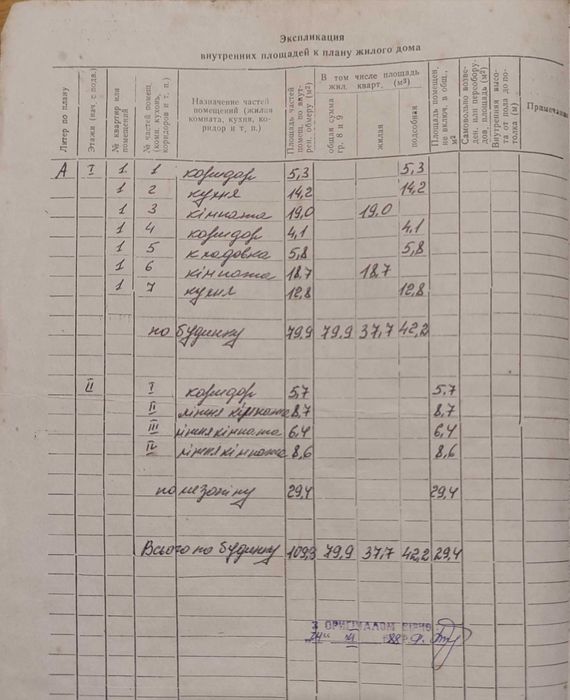 Экспликация
внутренних площадей к плану жилого дома
Литер по плану
Этажи (нач. с подв.)
№ квартир или помещений
№ частей помещ. (комн. кухонь, коридоров и т. п.)
Назначение частей помещений (жилая комната, кухня, коридор и т. п.)
Площадь частей помещ. по внутрен. обмеру (м²)
В том числе площадь жил. кварт. (м²)
общая сумма гр. 8 и 9
жилая
подсобная
Площадь помещен. не включ. в общ., м²
Самовольно возведен. или переоборудов. площадь (м²)
Внутренняя высота от пола до потолка (м)
Примечание
А I 1 1 коридор 5,3 5,3
1 2 кухня 14,2 14,2
1 3 кімната 19,0 19.0
1 4 коридор 4,1 4,1
1 5 кладовка 5,8 5,8
1 6 кімната 18,7 18,7
1 7 кухня 12,8 12,8
по будинку 79,9 79,9 37,7 42,2
II I коридор 5,7 5,7
II літня кімната 8,7 8,7
III літня кімната 6,4 6,4
IV літня кімната 8,6 8,6
по мезоніну 29,4 29,4
Всього по будинку 109,3 79,9 37,7 42,2 29,4
З ОРИГІНАЛОМ ВІРНО